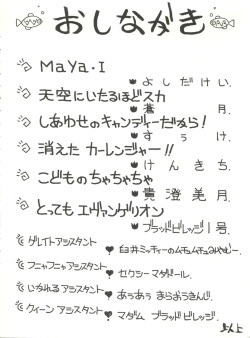 おしながき
MaYa・I
よしだけい.
天空にいたるほどスカ
蒼 月.
しあわせのキャンディーだから!
すぅけ.
消えた カーレンジャー!!
けんきち.
こどものちゃちゃちゃ
貴澄美月.
とっても エヴァンゲリオン
ブラッドビレッジ1号.
グレイト アシスタント
臼井ミッチーのムチュムチュみやむー.
フニャフニャアシスタント
セクシー マダドール.
いかれる アシスタント
あぅあぅ まらおうきんじ.
クィーン アシスタント
マダム ブラッド ビレッジ.
以上